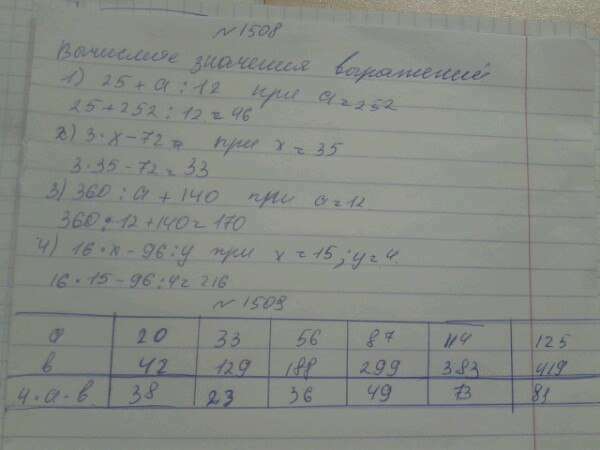 №1508
Вычислите значения выражений
1) 25 + а : 12 при а = 252
25 + 252 : 12 = 46
2) 3 · х - 72 = при х = 35
3 · 35 - 72 = 33
3) 360 : а + 140 при а = 12
360 : 12 + 140 = 170
4) 16 · х - 96 : у при х = 15; у = 4.
16 · 15 - 96 : 4 = 216
№1509
а 20 33 56 87 114 125
в 42 129 188 299 383 419
4·а-в 38 23 36 49 73 81